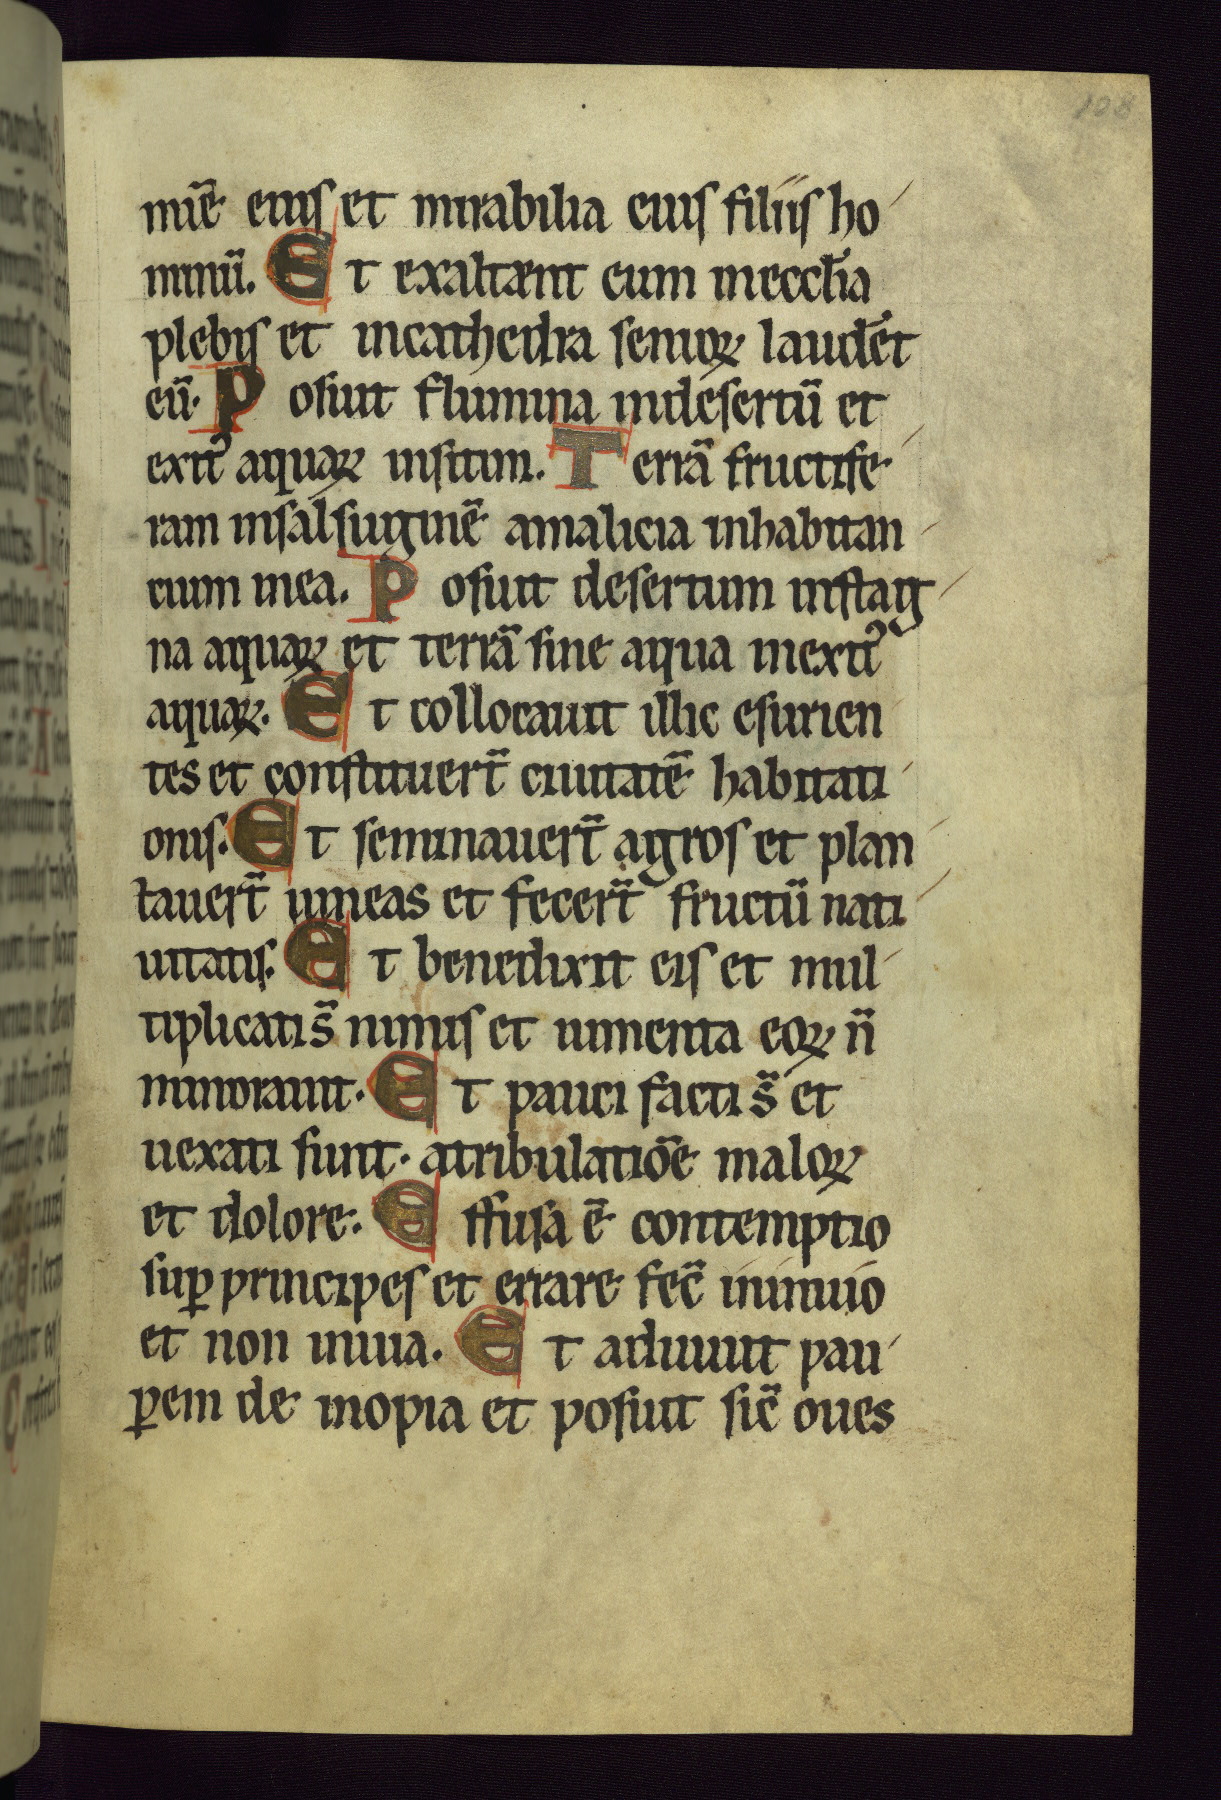 108
mīē eius et mirabilia eius filiis ho
minū. Et exaltent eum ineccłia
plebis et incathedra senioꝝ laudēt
eū. Posuit flumina indesertū et
exitꝰ aquaꝝ insitim. Terrā fructife
ram insalsuginē amalicia inhabitan
cium inea. Posuit desertum instag
na aquaꝝ et terrā sine aqua inexitꝰ
aquaꝝ. Et collocauit illic esurien
tes et constituert̄ ciuitatē habitati
onis. Et seminauert̄ agros et plan
tauert̄ uineas et fecert̄ fructū nati
uitatis. Et benedixit eis et mul
tiplicati s̄ nimis et iumenta eoꝝ n̄
minorauit. Et pauci facti s̄ et
uexati sunt. atribulatiōe maloꝝ
et dolore. Effusa ē contemptio
suꝑ principes et errare fec̄ ininuio
et non inuia. Et adiuuit pau
ꝑem de inopia et posuit sic̄ oues